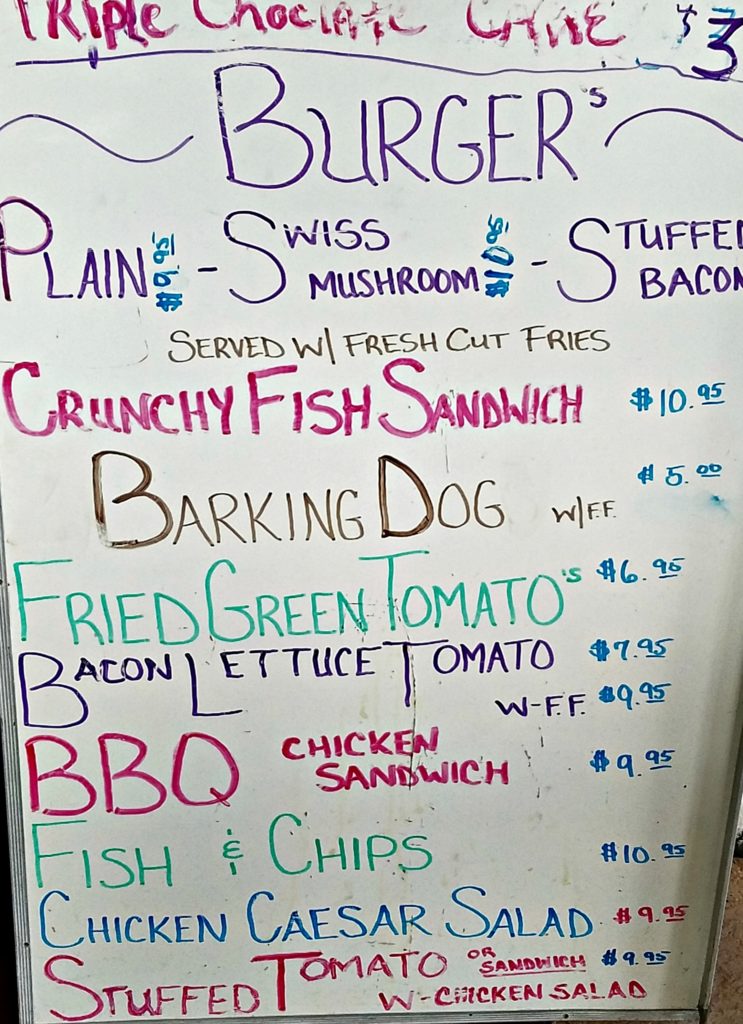 TRIPLE CHOCLATE CAKE $3
BURGER'S
PLAIN $9.95 - SWISS MUSHROOM $10.95 - STUFFED BACON
SERVED W/ FRESH CUT FRIES
CRUNCHY FISH SANDWICH $10.95
BARKING DOG W/FF. $5.00
FRIED GREEN TOMATO'S $6.95
BACON LETTUCE TOMATO $7.95
W-F.F. $9.95
BBQ CHICKEN SANDWICH $9.95
FISH & CHIPS $10.95
CHICKEN CAESAR SALAD $9.95
STUFFED TOMATO OR SANDWICH $9.95
W-CHICKEN SALAD